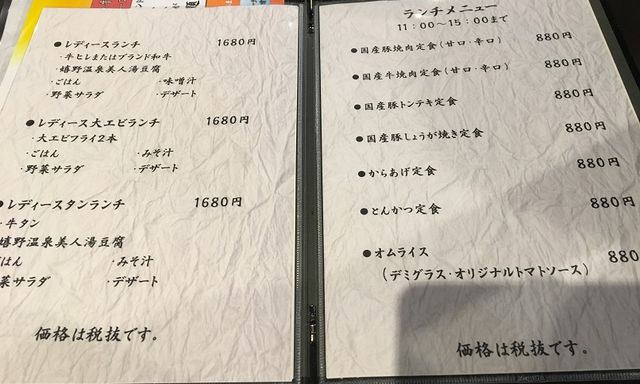 ●レディースランチ 1680円
・牛ヒレまたはブランド和牛
・嬉野温泉美人湯豆腐
・ごはん ・味噌汁
・野菜サラダ ・デザート
●レディース大エビランチ 1680円
・大エビフライ2本
・ごはん ・みそ汁
・野菜サラダ ・デザート
●レディースタンランチ 1680円
・牛タン
嬉野温泉美人湯豆腐
ごはん ・みそ汁
野菜サラダ ・デザート
価格は税抜です。
ランチメニュー
11:00~15:00まで
●国産豚焼肉定食(甘口・辛口) 880円
●国産牛焼肉定食(甘口・辛口) 880円
●国産豚トンテキ定食 880円
●国産豚しょうが焼き定食 880円
●からあげ定食 880円
●とんかつ定食 880円
●オムライス 880
(デミグラス・オリジナルトマトソース)
価格は税抜です。